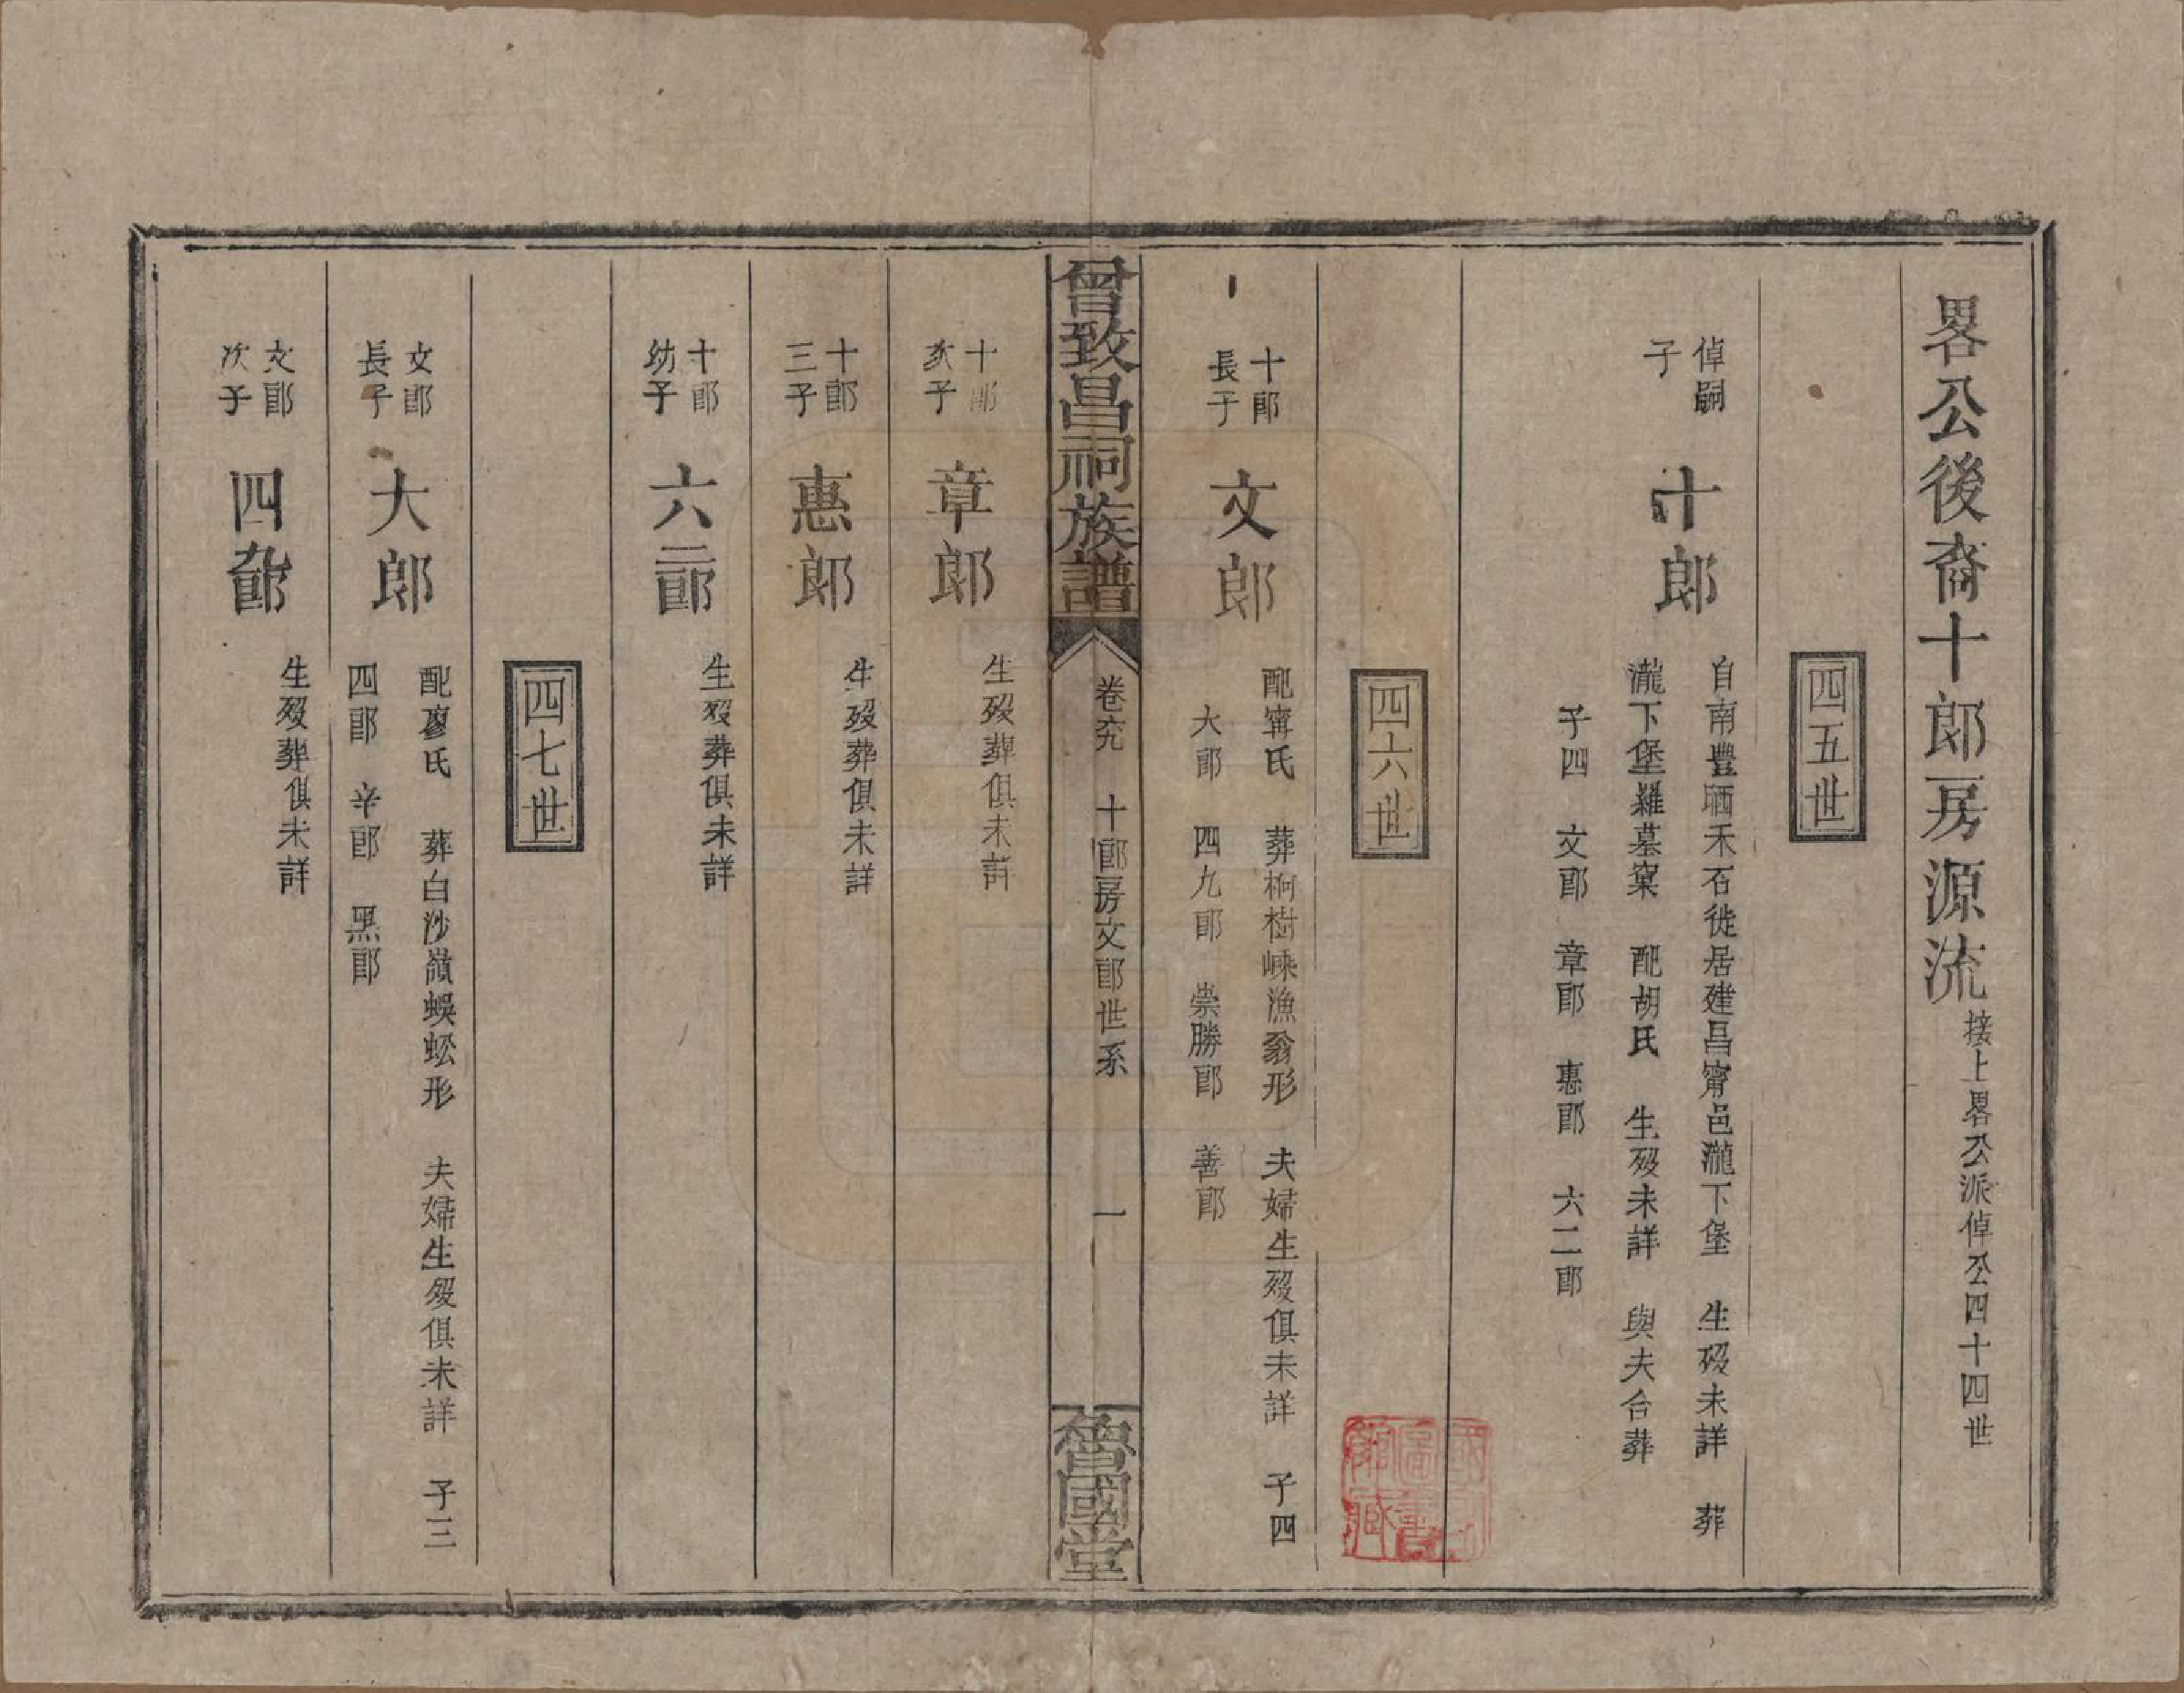 畧公後裔十郎房源流 接上畧公派倬公四十四世
四五世
倬嗣子 十郎
自南豐晒禾石徙居建昌甯邑瀧下堡 生歿未詳 葬
瀧下堡羅墓窠 配胡氏 生歿未詳 與夫合葬
子四 文郎 章郎 惠郎 六二郎
四六世
十郎長子 文郎
配甯氏 葬桐樹㟍漁翁形 夫婦生歿俱未詳 子四
大郎 四九郎 崇勝郎 善郎
曾致昌祠族譜 卷 十郎房文郎世系 一 魯國堂
十郎次子 章郎 生歿葬俱未詳
十郎三子 惠郎 生歿葬俱未詳
十郎幼子 六二郎 生歿葬俱未詳
四七世
文郎長子 大郎
配廖氏 葬白沙嶺蜈蚣形 夫婦生歿俱未詳 子三
四郎 辛郎 黑郎
文郎次子 四九郎 生歿葬俱未詳